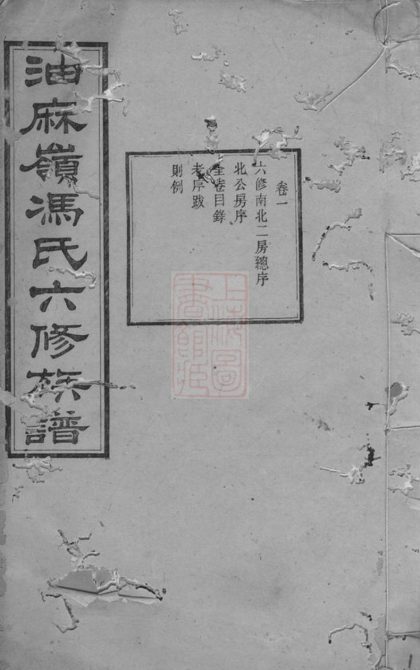 卷一
六修南北二房總序
北公房序
全卷目錄
老序跋
則例
油麻嶺馮氏六修族譜
上海圖書館藏